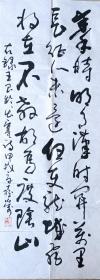 秦時明月漢時關萬里
長征人未還但使龍城飛
將在不教胡馬度陰山
右錄王昌齡出塞詩